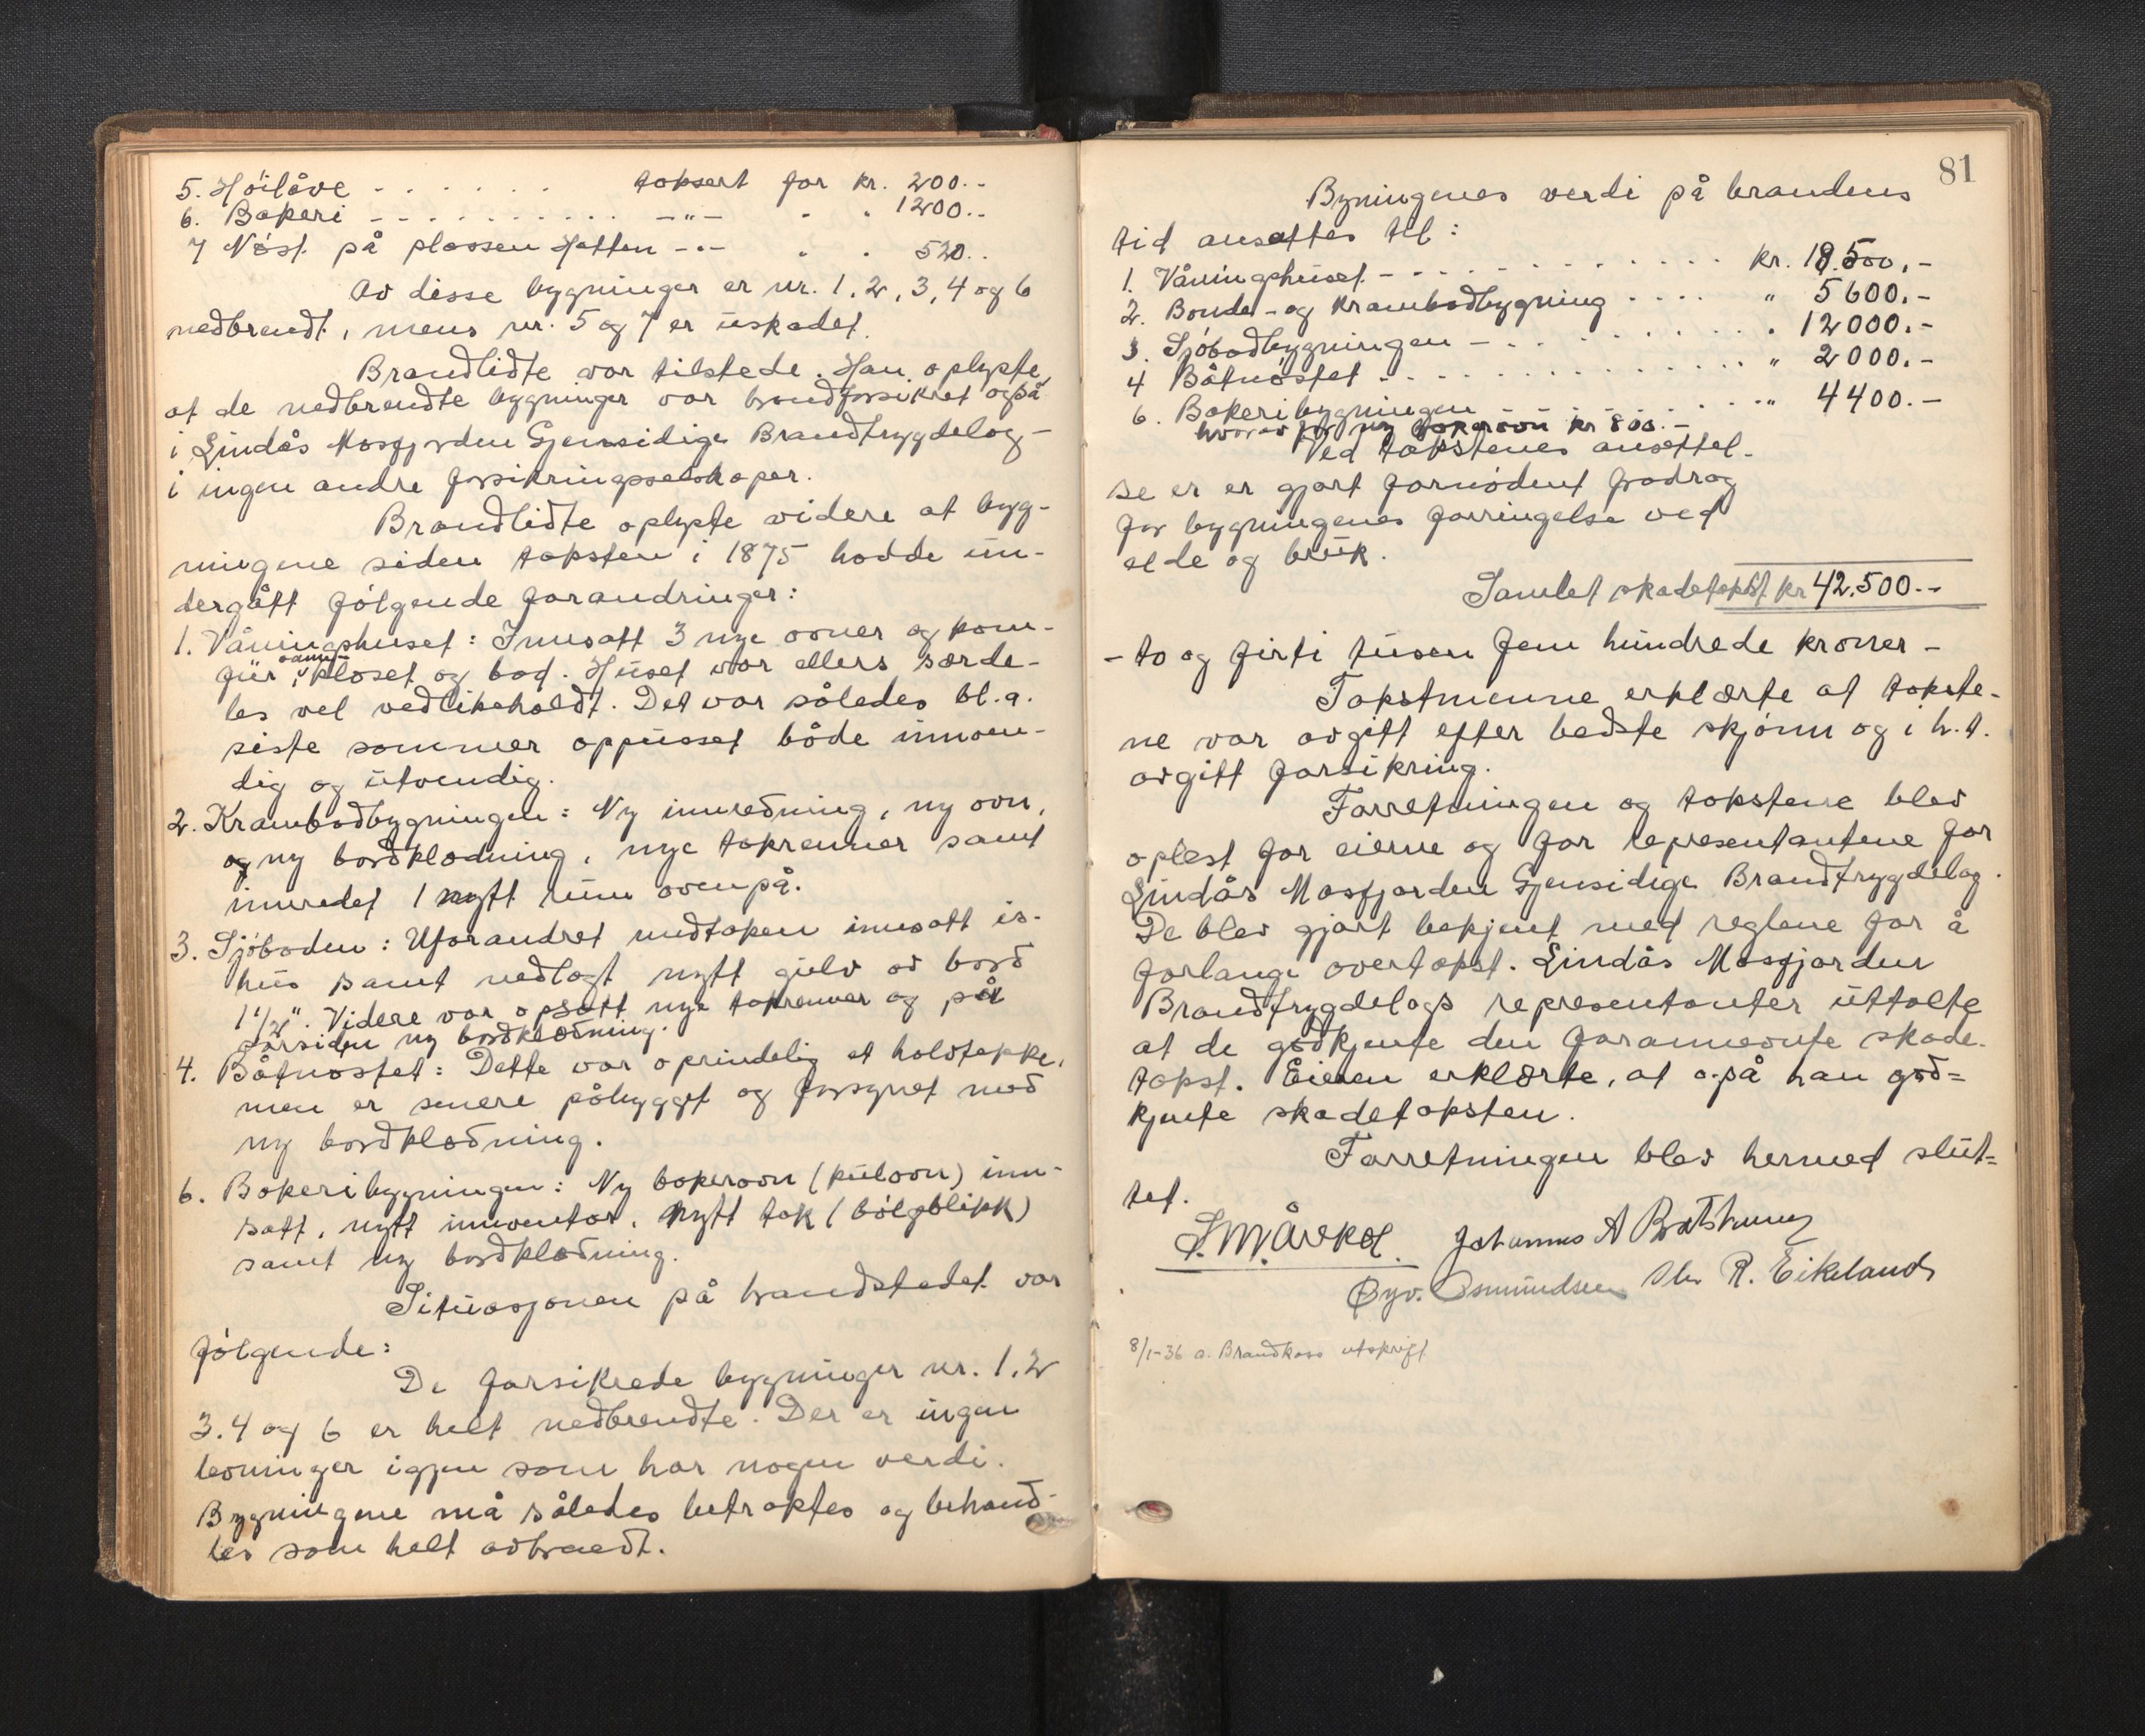 5. Høilåve - - - - - - taksert for kr. 200.-
6. Bakeri - - - - - - - - - -"- " " 1200.-
7 Nøst på plassen Hatten -"- " " 520..
Av disse bygninger er nr. 1, 2, 3, 4 og 6
nedbrendt, mens nr. 5 og 7 er uskadet.
Brandlidte var tilstede. Han oplyste,
at de nedbrendte bygninger var brandforsikret også
i Lindås Masfjorden Gjensidige Brandtrygdelag -
i ingen andre forsikringsselskaper.
Brandlidte oplyste videre at byg-
ningene siden taksten i 1875 hadde un-
dergått følgende forandringer:
1. Våningshuset: Innsatt 3 nye ovner og kom-
fur, vann-kloset og bad. Huset var ellers særde-
les vel vedlikeholdt. Det var således bl.a.
siste sommer oppusset både innven-
dig og utvendig.
2. Krambodbygningen: Ny innredning, ny ovn,
og ny bordklædning, nye takrenner samt
innredet 1 nytt rum ovenpå.
3. Sjøboden: Uforandret undtaken innsatt is-
hus samt nedlagt nytt gulv av bord
1 1/2". Videre var opsatt nye takrenner og på
forsiden ny bordklædning.
4. Båtnøstet: Dette var oprindelig et halvtekke,
men er senere påbygget og forsynet med
ny bordklædning.
6. Bakeribygningen: Ny bakerovn (kulovn) inn-
satt, nytt inventar, nytt tak (bølgblikk)
samt ny bordklædning.
Situasjonen på brandstedet var
følgende:
De forsikrede bygninger nr. 1, 2
3. 4 og 6 er helt nedbrendte. Der er ingen
levninger igjen som har nogen verdi.
Bygningene må således betraktes og behand-
les som helt avbrendt.
81
Bygningenes verdi på brandens
tid ansattes til:
1. Våningshuset - - - - - - - - - kr. 18.500,-
2. Bonde- og Krambodbygning - - - - " 5600.-
3. Sjøbodbygningen - - - - - - - - " 12000.-
4 Båtnøstet - - - - - - - - - - " 2000.-
6. Bakeribygningen - - - - - - " 4400.-
hvorav for ny bakerovn kr 800.-
Ved takstenes ansettel-
se er er gjort fornødent fradrag
for bygningenes forringelse ved
elde og bruk.
Samlet skadetakst kr 42.500.-
- to og firti tusen fem hundrede kroner -
Takstmenne erklærte at takste-
ne var avgitt efter bedste skjønn og i h.t.
avgitt forsikring.
Forretningen og takstene blev
oplest for eierne og for representantene for
Lindås Masfjorden Gjensidige Brandtrygdelag.
De blev gjort bekjent med reglene for å
forlange overtakst. Lindås Masfjorden
Brandtrygdelags representanter uttalte
at de godkjente den forannevnte skade-
takst. Eieren erklærte, at også han god=
kjente skadetaksten.
Forretningen blev hermed slut=
tet.
Johannes A
Øyv. Osmundsen R. Eikeland
8/1-36 a. Brandkass utskrift